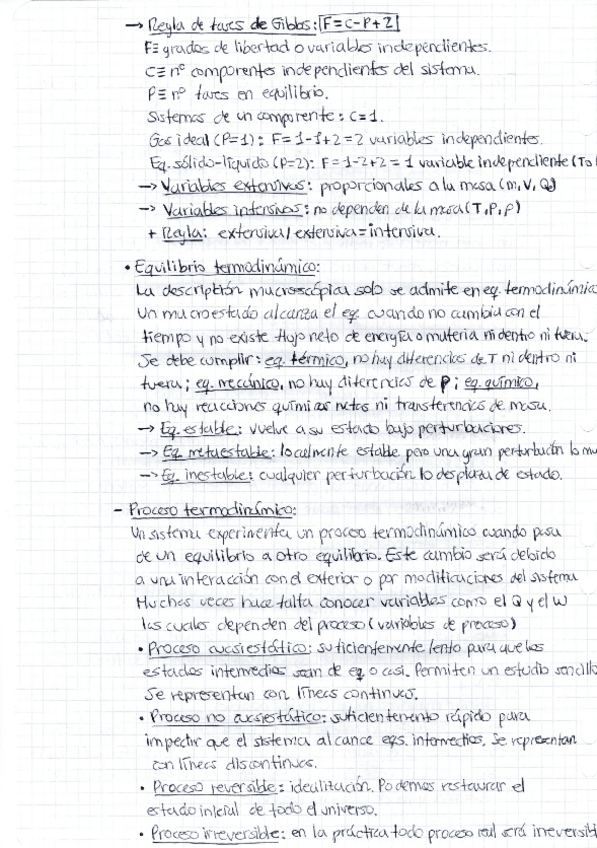 → Regla de fases de Gibbs: F=C-P+2
F≡ grados de libertad o variables independientes.
C≡ nº componentes independientes del sistema.
P≡ nº fases en equilibrio.
Sistemas de un componente: C=1.
Gas ideal (P=1): F=1-1+2=2 variables independientes.
Eq. sólido-líquido (P=2): F=1-2+2=1 variable independiente (T o
→ Variables extensivas: proporcionales a la masa (m, V, Q)
→ Variables intensivas: no dependen de la masa (T, P, ρ)
+ Regla: extensiva/extensiva=intensiva.
• Equilibrio termodinámico:
La descripción macroscópica solo se admite en eq. termodinámico
Un macroestado alcanza el eq. cuando no cambia con el
tiempo y no existe flujo neto de energía o materia ni dentro ni fuera.
Se debe cumplir: eq. térmico, no hay diferencias de T ni dentro ni
fuera; eq. mecánico, no hay diferencias de P; eq. químico,
no hay reacciones químicas netas ni transferencias de masa.
→ Eq. estable: vuelve a su estado bajo perturbaciones.
→ Eq. metaestable: localmente estable pero una gran perturbación lo
→ Eq. inestable: cualquier perturbación lo desplaza de estado.
- Proceso termodinámico:
Un sistema experimenta un proceso termodinámico cuando pasa
de un equilibrio a otro equilibrio. Este cambio será debido
a una interacción con el exterior o por modificaciones del sistema
Muchas veces hace falta conocer variables como el Q y el W
las cuales dependen del proceso (variables de proceso)
• Proceso cuasiestático: suficientemente lento para que los
estados intermedios sean de eq o casi. Permiten un estudio sencillo
Se representan con líneas continuas.
• Proceso no cuasiestático: suficientemente rápido para
impedir que el sistema alcance eqs. intermedios. Se representan
con líneas discontinuas.
• Proceso reversible: idealización. Podemos restaurar el
estado inicial de todo el universo.
• Proceso irreversible: en la práctica todo proceso real será